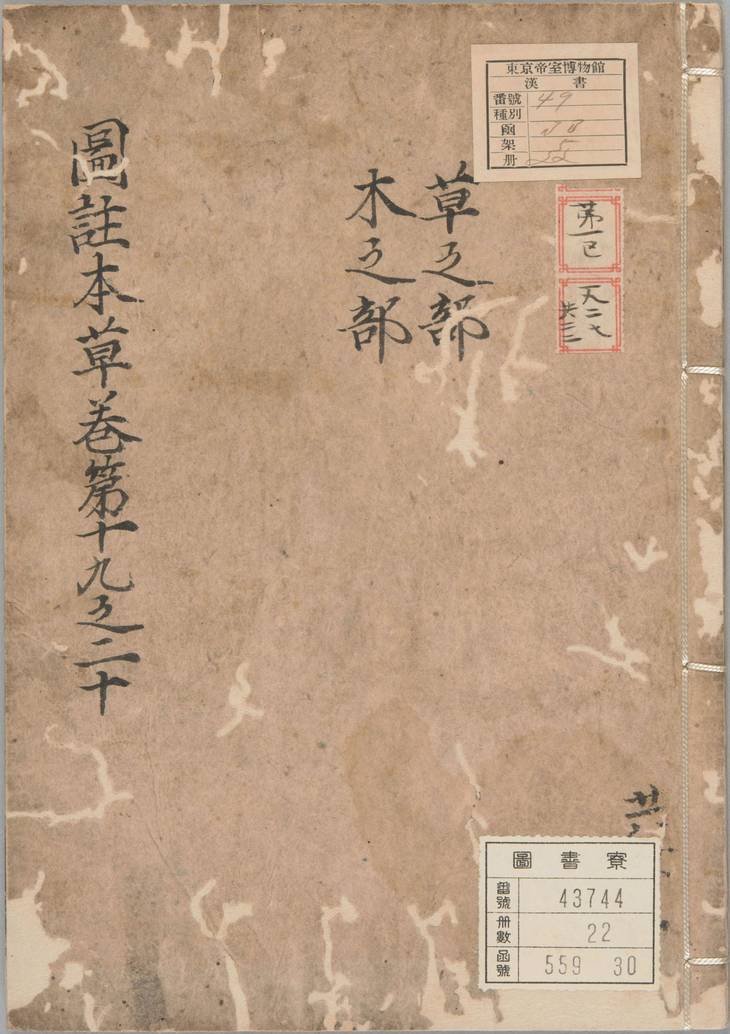 東京帝室博物館
漢書
番號 49
種別
函
架 5
册 22
第一
草之部
木之部
圖註本草卷第十九之二十
圖書寮
番號 43744
册數 22
函號 559 30